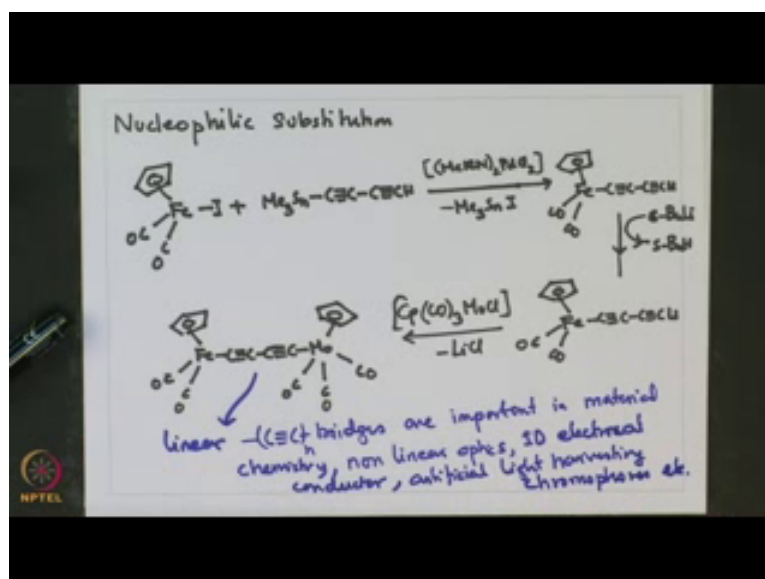 Nucleophilic Substitution
[(MeCN)₂PdCl₂]
Fe -I + Me₃Sn-C≡C-C≡CH
-Me₃SnI
Fe -C≡C-C≡CH
OC
CO
s-BuLi
s-BuH
[Cp(CO)₃MoCl]
-LiCl
Fe -C≡C-C≡CLi
OC
CO
Fe-C≡C-C≡C-Mo
CO
linear -(C≡C)n bridges are important in material
chemistry, non linear optics, 1D electrical
conductor, artificial light harvesting
chromophores etc.
NPTEL